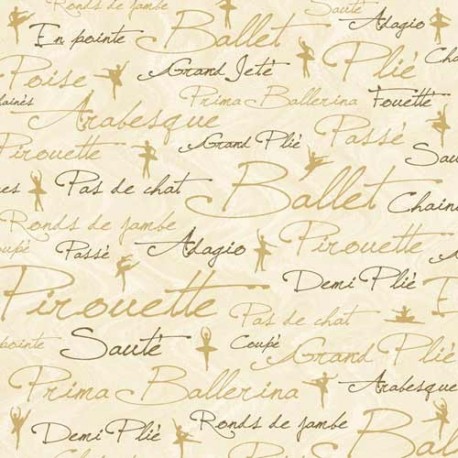 Ronds de jambe Sauté
En pointe Ballet Adagio
Poise Grand Jeté Plié Cha
aînés Prima Ballerina Fouetté
Arabesque Passé
Pirouette Grand Plié Sauté
es Pas de chat Ballet Chaîné
Ronds de jambe
Coupé Passé Adagio Pirouette
Demi Plié
Pirouette Pas de chat
En pointe Sauté Coupé Grand Plié
Prima Ballerina Arabesque
Demi Plié Ronds de jambe Ballet